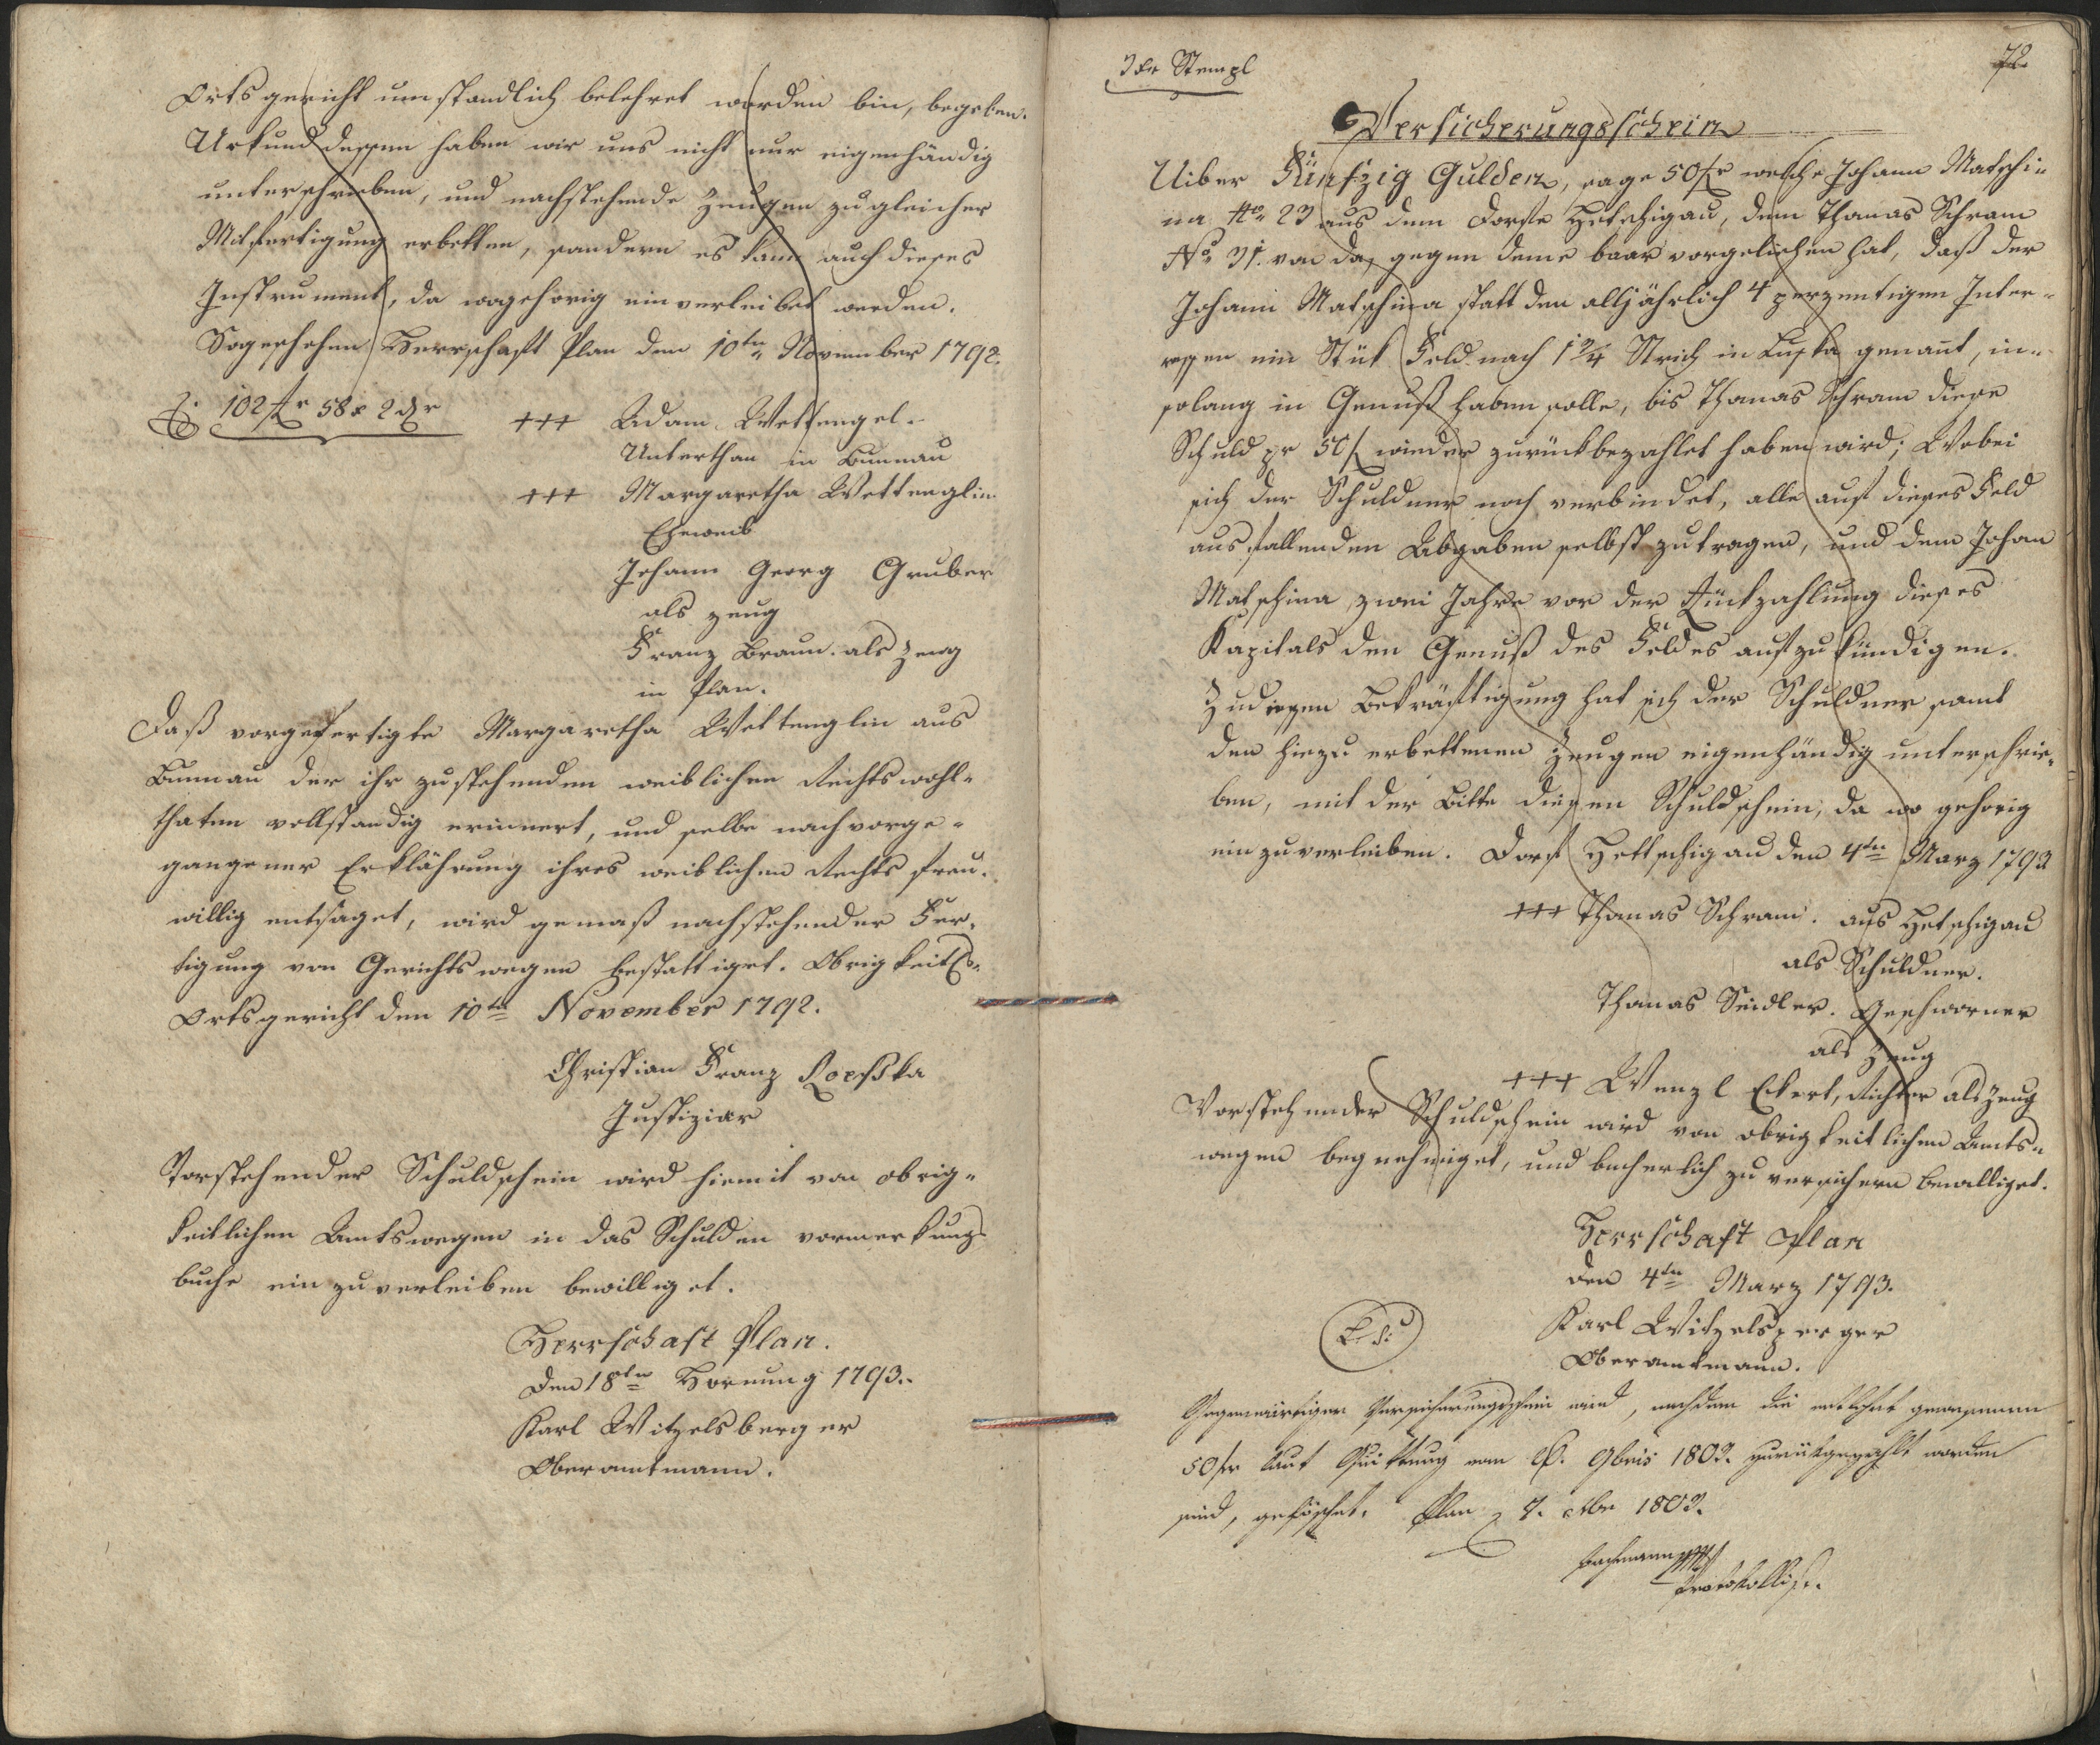 Ortsgericht umständlich belehret worden bin, begeben.
Urkund dessen haben wir uns nicht nur eigenhändig
unterschrieben, und nachstehende Zeugen zu gleicher
Mitfertigung erbetten, sondern es kann auch dieses
Instrument, da wogehörig einverleibet werden.
So geschehen Herrschaft Plan den 10tn November 1792.
102 fr 58 x 2 dr
+++ Adam Wettengel.
Unterthan in
+++ Margaretha Wettenglin
Eheweib
Johann Georg Gruber
als Zeug
Franz Braun. als Zeug
in Plan.
Daß vorgefertigte Margaretha Wettenglin aus
der ihr zustehenden weiblichen Rechtswohl-
thaten vollständig erinnert, und selbe nach vorge-
gangener Erklährung ihres weiblichen Rechts frey-
willig entsaget, wird gemäß nachstehender Fer-
tigung von Gerichtswegen bestättiget. Obrigkeitls.
Ortsgericht den 10tn November 1792.
Christian Franz
Justiziär
Vorstehender Schuldschein wird hiemit von obrig-
keitlichen Amtswegen in das Schulden vormerkungs
buche einzuverleiben bewilliget.
Herrschaft Plan.
den 18tn Hornung 1793.
Karl Witzelsberger
Oberamtmann.
3 xr Stempl
72
Versicherungsschein
Uiber Fünfzig Gulden, sage 50 fr welche Johann Matschi-
na Nro 23 aus dem Dorfe Hetschigau, dem Thomas Schram
No 31. von da, gegen deme baar vorgeliehen hat, daß der
Johann Matschina statt den alljährlich 4 perzentigen Inter-
essen ein Stük Feld nach 1 2/4 Strich in genant, in-
solang in Genuß haben solle, bis Thomas Schram diese
Schuld pr 50 f wieder zurückbezahlet haben wird; Wobei
sich der Schuldner noch verbindet, alle auf dieses Feld
ausfallenden Abgaben selbst zu tragen, und dem Johan
Matschina zwei Jahre vor der Rückzahlung dieses
Kapitals den Genuß des Feldes aufzukündigen.
Zu dessen Bekräftigung hat sich der Schuldner samt
den hiezu erbettenen Zeugen eigenhändig unterschrie-
ben, mit der Bitte diesen Schuldschein, da wo gehörig
einzuverleiben. Dorf Hettschigau den 4tn März 1793
+++ Thomas Schram. aus Hetschigau
als Schuldner.
Thomas Seidler. Geschworner
als Zeug
+++ Wenzl Eckert, Richter als Zeug
Vorstehender Schuldschein wird von obrigkeitlichen Amts-
wegen begnehmiget, und bücherlich zu versichern bewilliget.
Herrschaft Plan
den 4tn März 1793.
L. S.
Karl Witzelsperger
Oberamtmann.
Gegenwärtiger Versicherungsschein wird, nachdem die entlehnt gewesenen
50 fr laut Quittung vom 9bris 1802. zurückgezahlt worden
sind, gelöschet. Plan 7. 1802.
Protokollist.